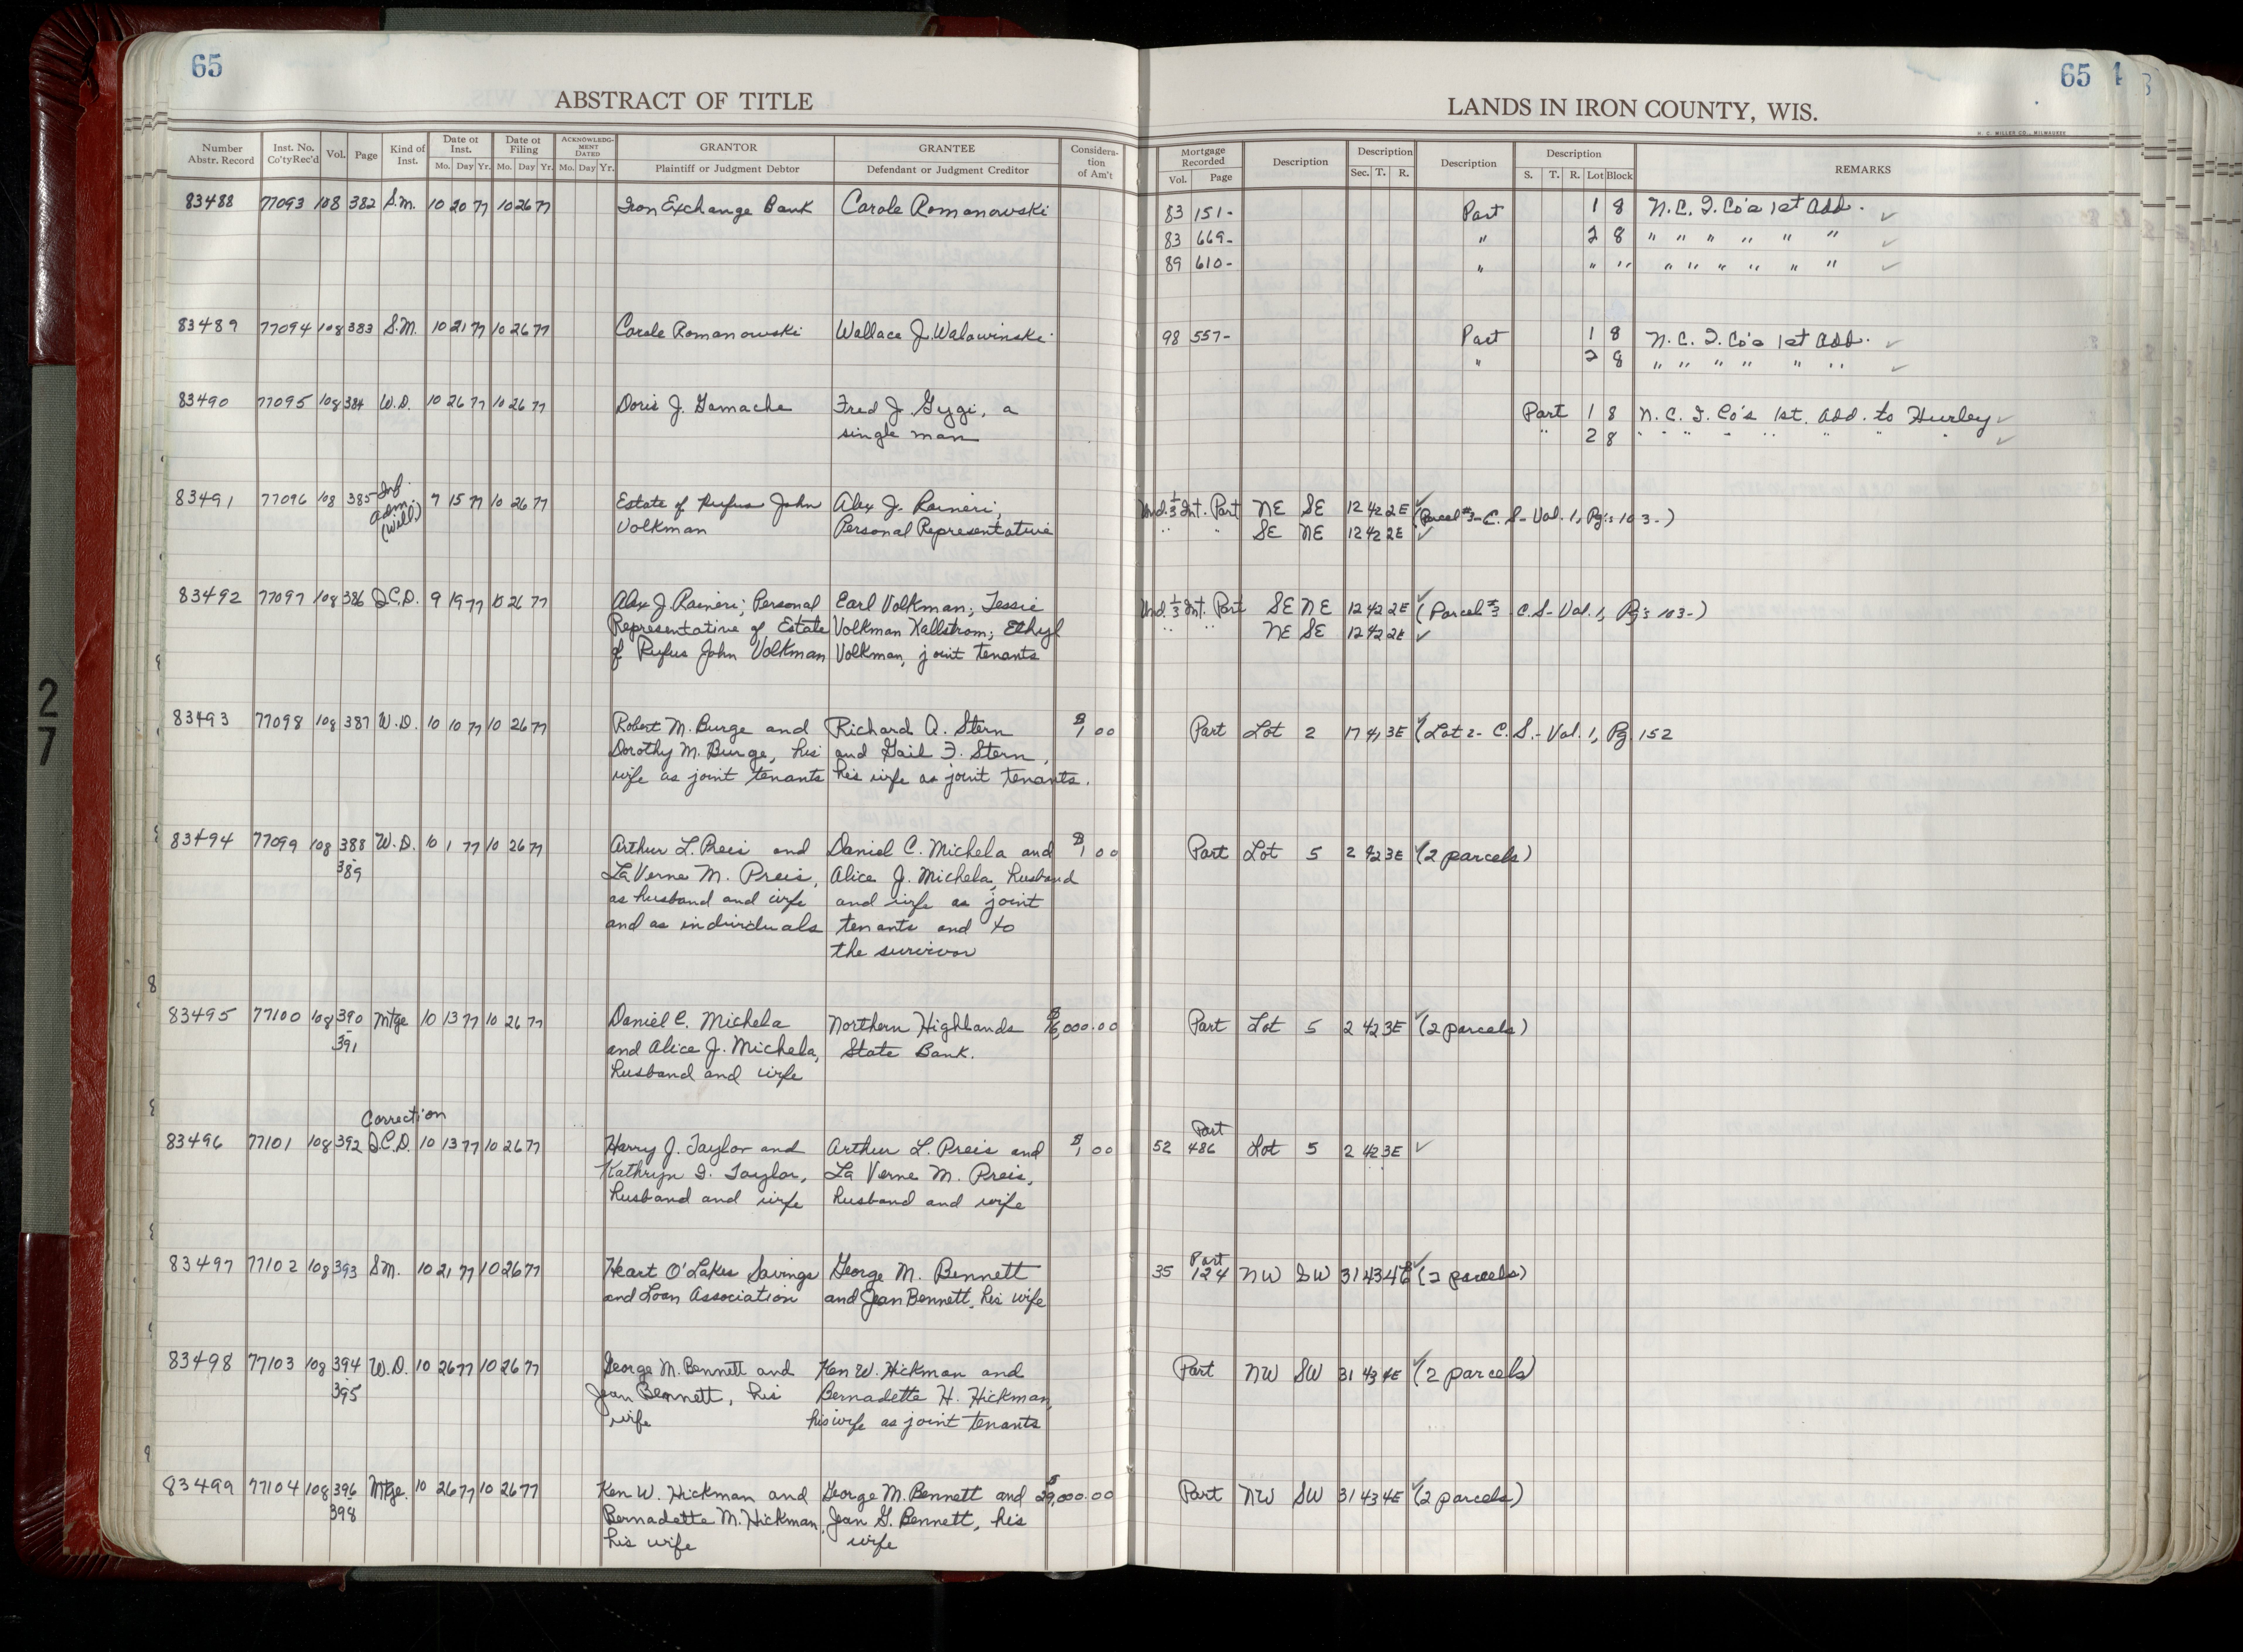 65
ABSTRACT OF TITLE
Number Abstr. Record | Inst. No. Co'ty Rec'd | Vol. | Page | Kind of Inst. | Date of Inst. Mo. Day Yr. | Date of Filing Mo. Day Yr. | ACKNOWLEDGMENT DATED Mo. Day Yr. | GRANTOR Plaintiff or Judgment Debtor | GRANTEE Defendant or Judgment Creditor | Consideration of Am't
83488 77093 108 382 S.M. 10 20 77 10 26 77 Iron Exchange Bank Carole Romanowski
83489 77094 108 383 S.M. 10 21 77 10 26 77 Carole Romanowski Wallace J. Walowinski
83490 77095 108 384 W.D. 10 26 77 10 26 77 Doris J. Gamache Fred J. Gygi, a
single man
83491 77096 108 385 Inf. Adm. (Will) 7 15 77 10 26 77 Estate of Rufus John Alex J. Raineri,
Volkman Personal Representative
83492 77097 108 386 Q.C.D. 9 19 77 10 26 77 Alex J. Raineri; Personal Earl Volkman; Tessie
Representative of Estate Volkman Kallstrom; Ethyl
of Rufus John Volkman Volkman, joint tenants
83493 77098 108 387 W.D. 10 10 77 10 26 77 Robert M. Burge and Richard A. Stern $1.00
Dorothy M. Burge, his and Gail F. Stern,
wife as joint tenants his wife as joint tenants.
83494 77099 108 388 W.D. 10 1 77 10 26 77 Arthur L. Preis and Daniel C. Michela and $1.00
- 389 La Verne M. Preis, Alice J. Michela, husband
as husband and wife and wife as joint
and as individuals tenants and to
the survivor
83495 77100 108 390 Mtge 10 13 77 10 26 77 Daniel C. Michela Northern Highlands $16,000.00
- 391 and Alice J. Michela, State Bank.
husband and wife
Correction
83496 77101 108 392 Q.C.D. 10 13 77 10 26 77 Harry J. Taylor and Arthur L. Preis and $1.00
Kathryn I. Taylor, La Verne M. Preis,
husband and wife husband and wife
83497 77102 108 393 S.M. 10 21 77 10 26 77 Heart O'Lakes Savings George M. Bennett
and Loan Association and Jean Bennett, his wife
83498 77103 108 394 W.D. 10 26 77 10 26 77 George M. Bennett and Ken W. Hickman and
- 395 Jean Bennett, his Bernadette H. Hickman,
wife his wife as joint tenants
83499 77104 108 396 Mtge. 10 26 77 10 26 77 Ken W. Hickman and George M. Bennett and $29,000.00
398 Bernadette M. Hickman, Jean G. Bennett, his
his wife wife
65
LANDS IN IRON COUNTY, WIS.
H. C. MILLER CO., MILWAUKEE
Mortgage Recorded Vol. Page | Description | Description Sec. T. R. | Description | Description S. T. R. Lot Block | REMARKS
83 151- Part 1 8 N.C.I. Co's 1st Add. ✓
83 669- " 2 8 " " " " " " ✓
89 610- " " " " " " " " " ✓
98 557- Part 1 8 N.C.I. Co's 1st Add. ✓
" 2 8 " " " " " " ✓
Part 1 8 N.C.I. Co's 1st. Add. to Hurley ✓
" 2 8 " " " " " " " " ✓
Und. 1/3 Int. Part NE SE 12 42 2E ✓ (Parcel #3- C.S- Vol. 1, Pg: 103-)
" " SE NE 12 42 2E ✓
Und. 1/3 Int. Part SE NE 12 42 2E ✓ (Parcel #3 C.S- Vol. 1, Pg: 103-)
" " NE SE 12 42 2E ✓
Part Lot 2 17 41 3E ✓ (Lot 2- C.S.- Vol. 1, Pg. 152
Part Lot 5 2 42 3E ✓ (2 parcels)
Part Lot 5 2 42 3E ✓ (2 parcels)
Part
52 486 Lot 5 2 42 3E ✓
Part
35 124 NW SW 31 43 4E ✓ (2 parcels)
Part NW SW 31 43 4E ✓ (2 parcels)
Part NW SW 31 43 4E ✓ (2 parcels)
27